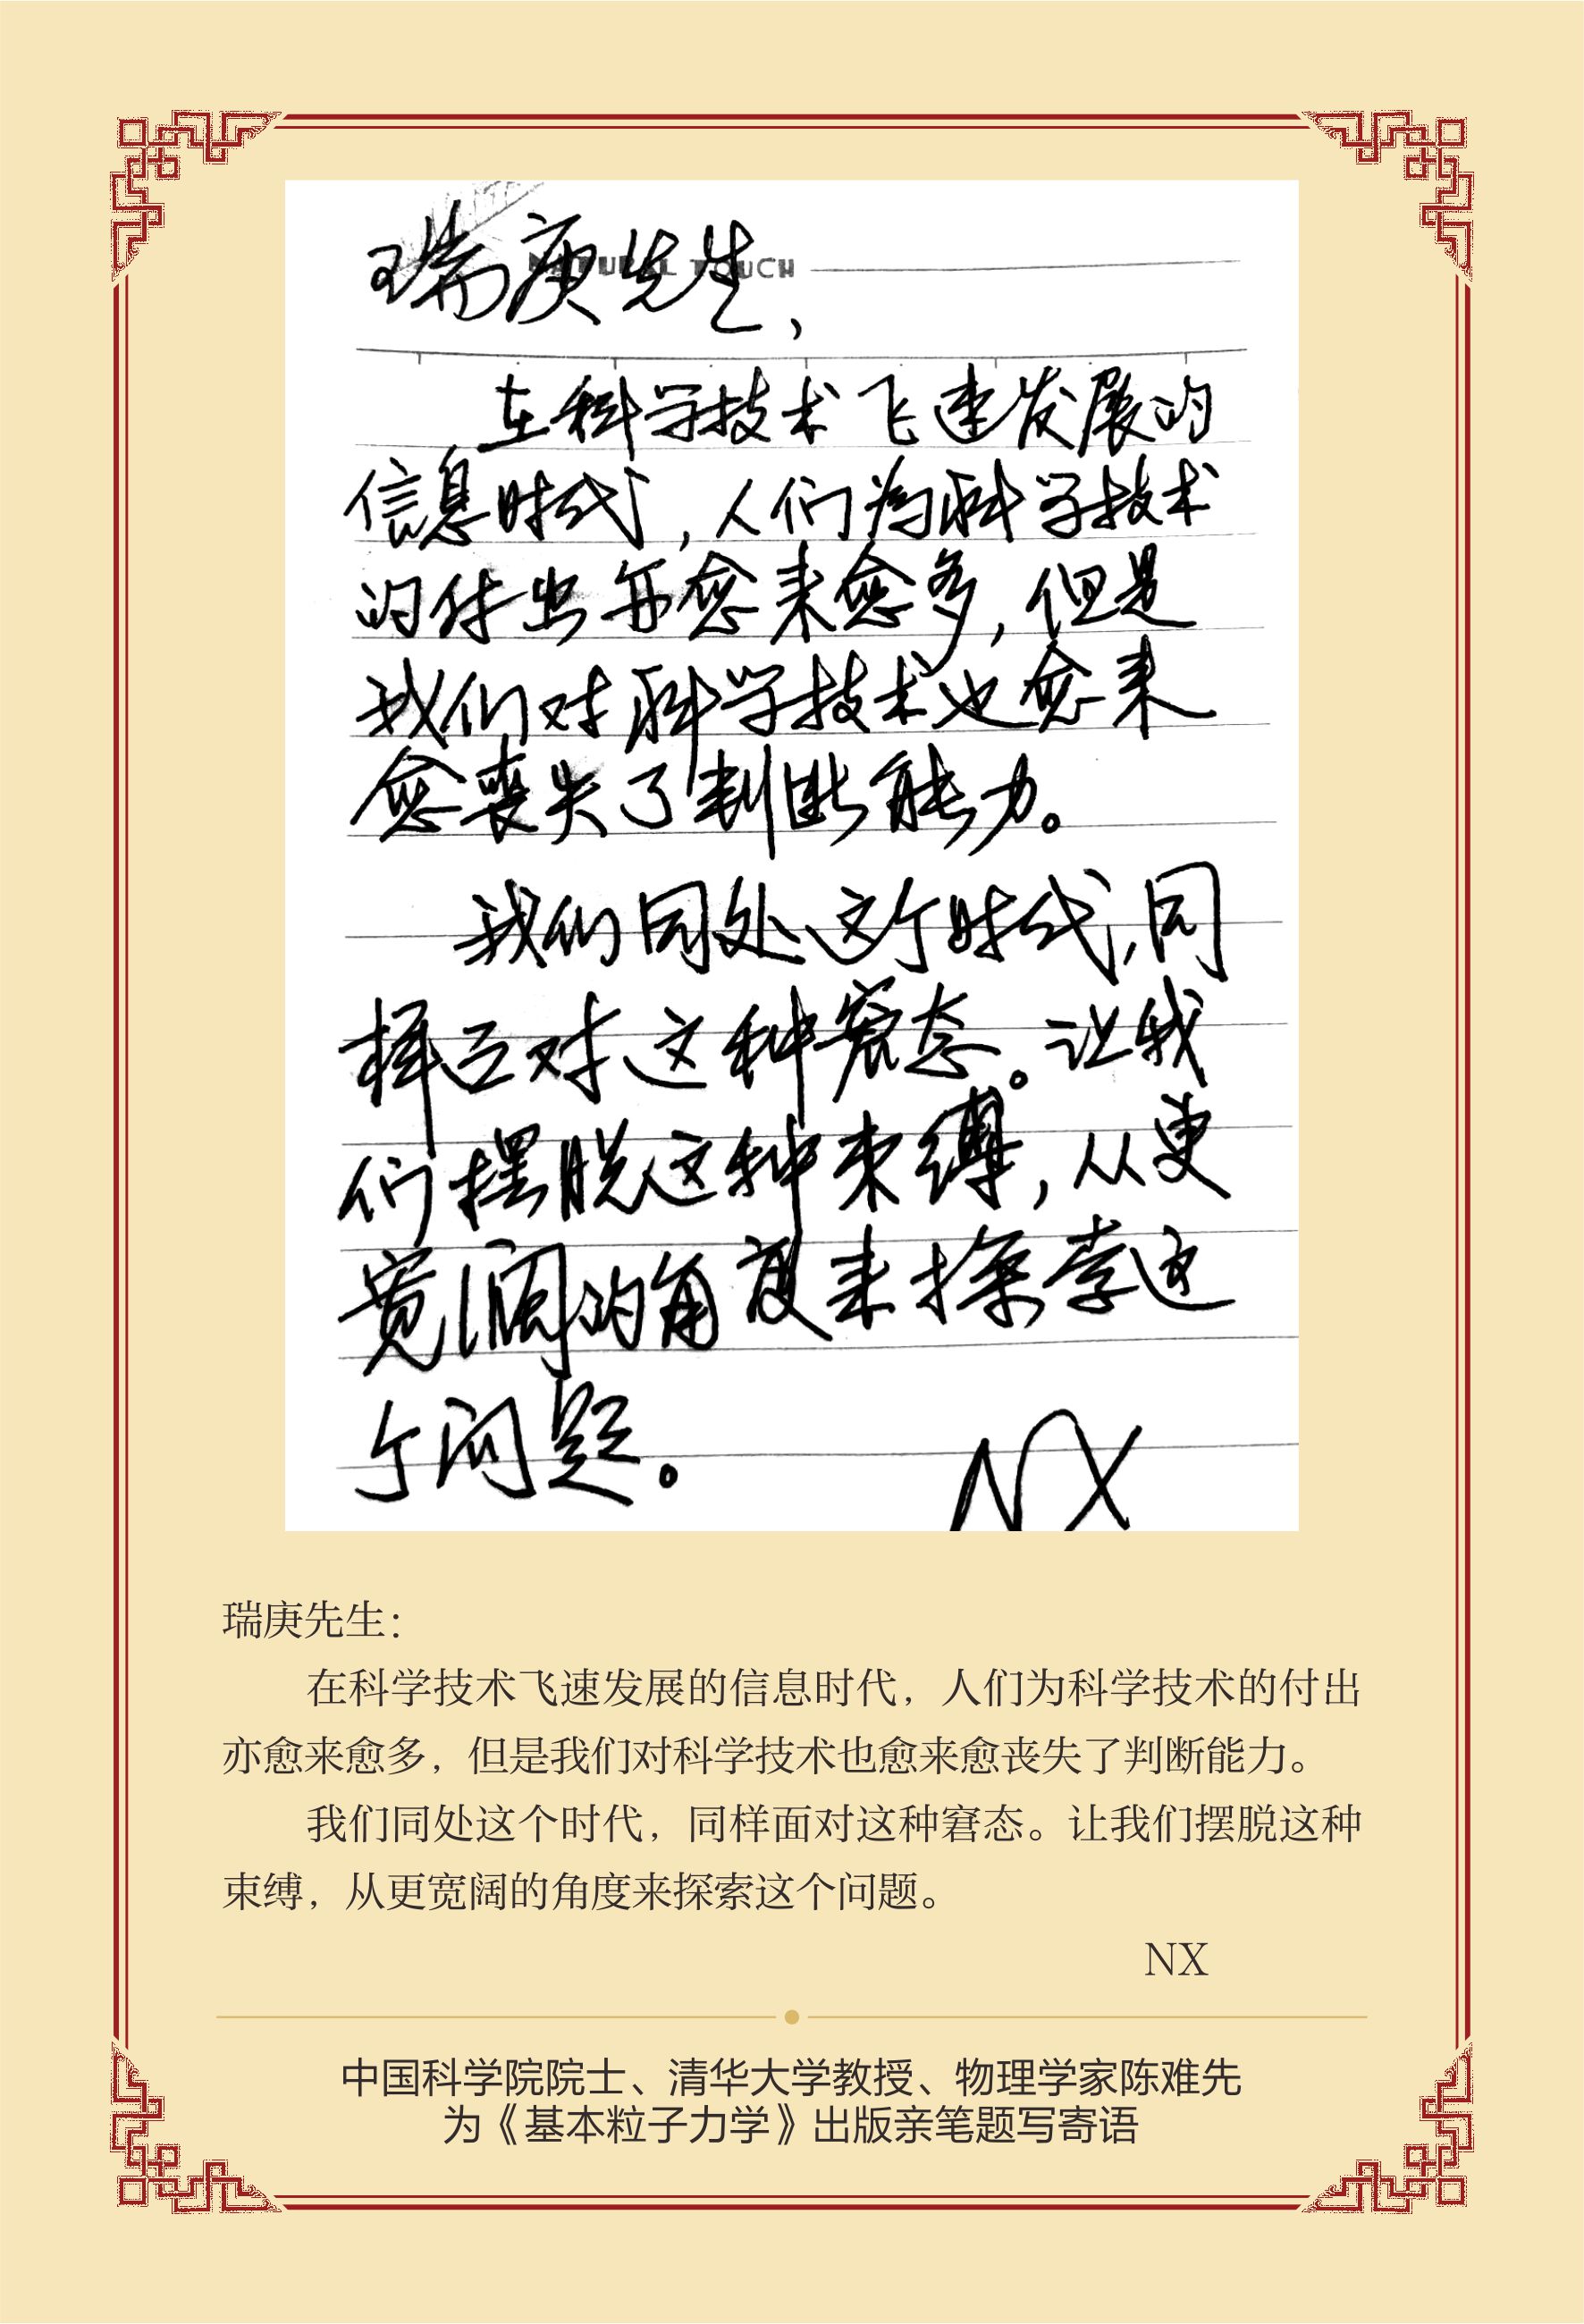 瑞庚先生，
NATURAL TOUCH
在科学技术飞速发展的
信息时代，人们为科学技术
的付出亦愈来愈多，但是
我们对科学技术也愈来
愈丧失了判断能力。
我们同处这个时代，同
样面对这种窘态。让我
们摆脱这种束缚，从更
宽阔的角度来探索这
个问题。
NX
瑞庚先生：
在科学技术飞速发展的信息时代，人们为科学技术的付出
亦愈来愈多，但是我们对科学技术也愈来愈丧失了判断能力。
我们同处这个时代，同样面对这种窘态。让我们摆脱这种
束缚，从更宽阔的角度来探索这个问题。
NX
中国科学院院士、清华大学教授、物理学家陈难先
为《基本粒子力学》出版亲笔题写寄语